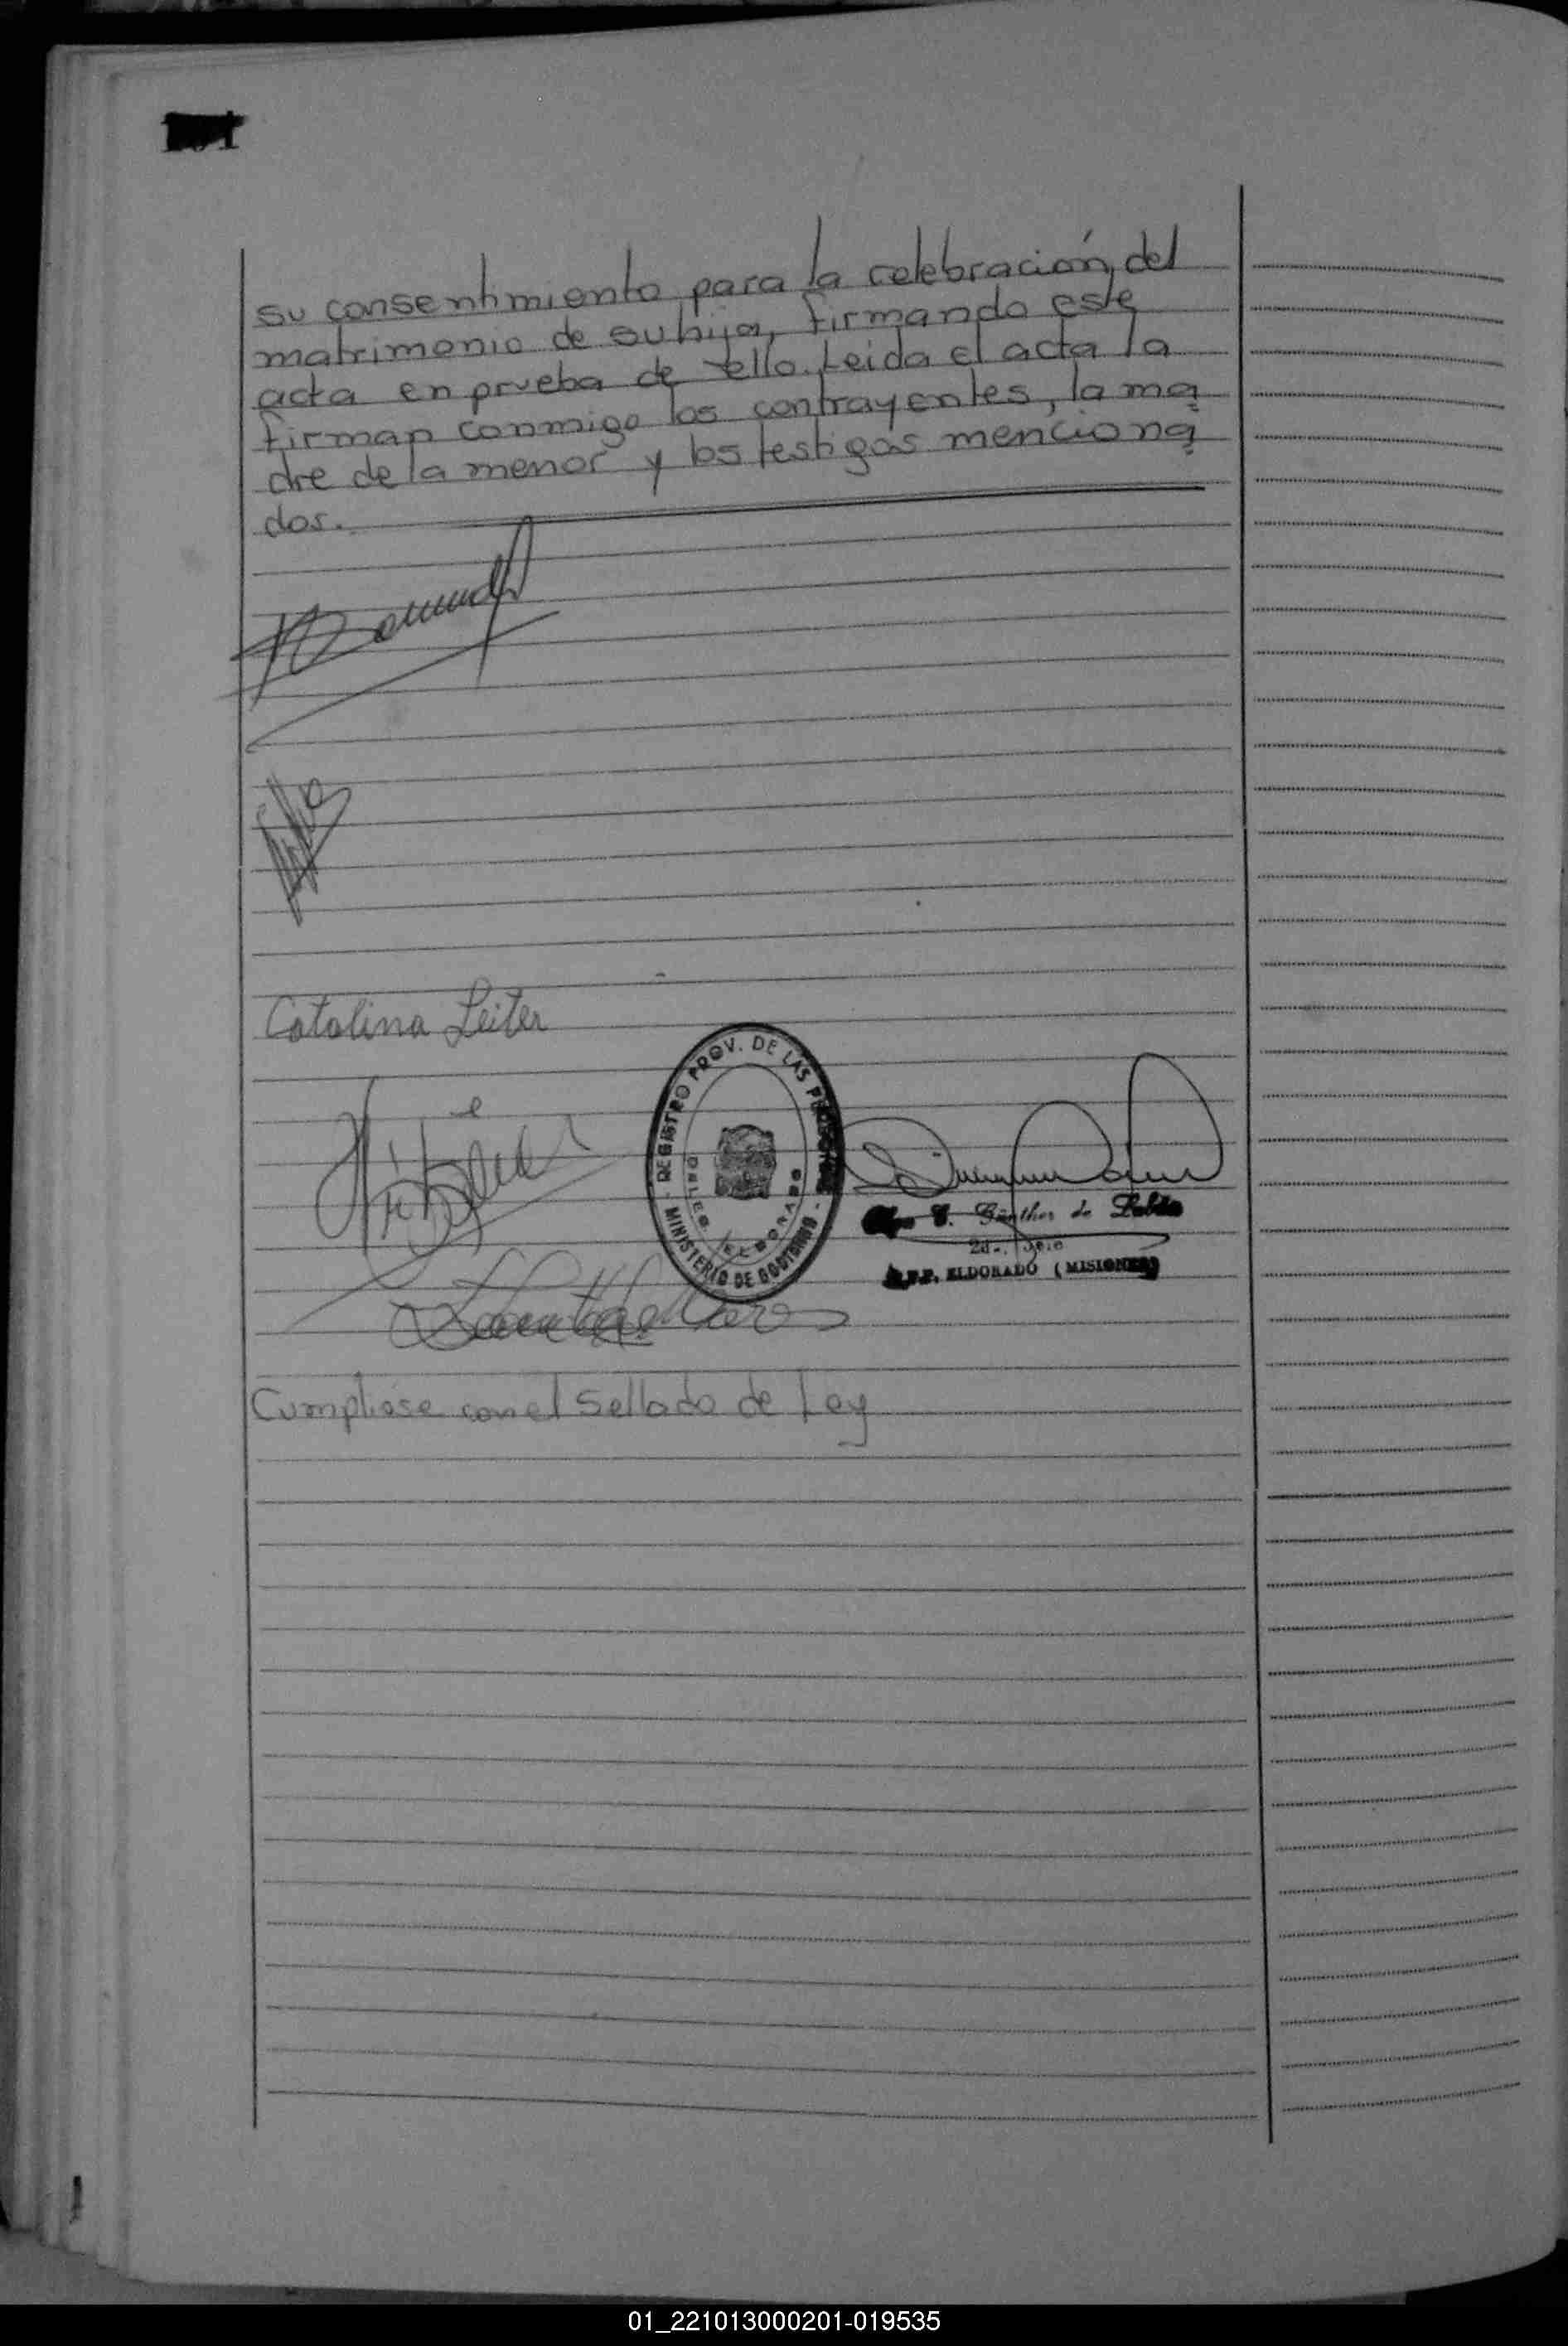 su consentimiento para la celebración del
matrimonio de su hija, firmando este
acta en prueba de ello. Leida el acta la
firman conmigo los contrayentes, la ma
dre de la menor y los testigos menciona
dos.
Catalina Leiter
REGISTRO PROV. DE LAS PERSONAS
MINISTERIO DE GOBIERNO
ELDORADO
Günther de
2do. Jefe
ELDORADO (MISIONES)
Cumpliose con el Sellado de Ley
01_221013000201-019535